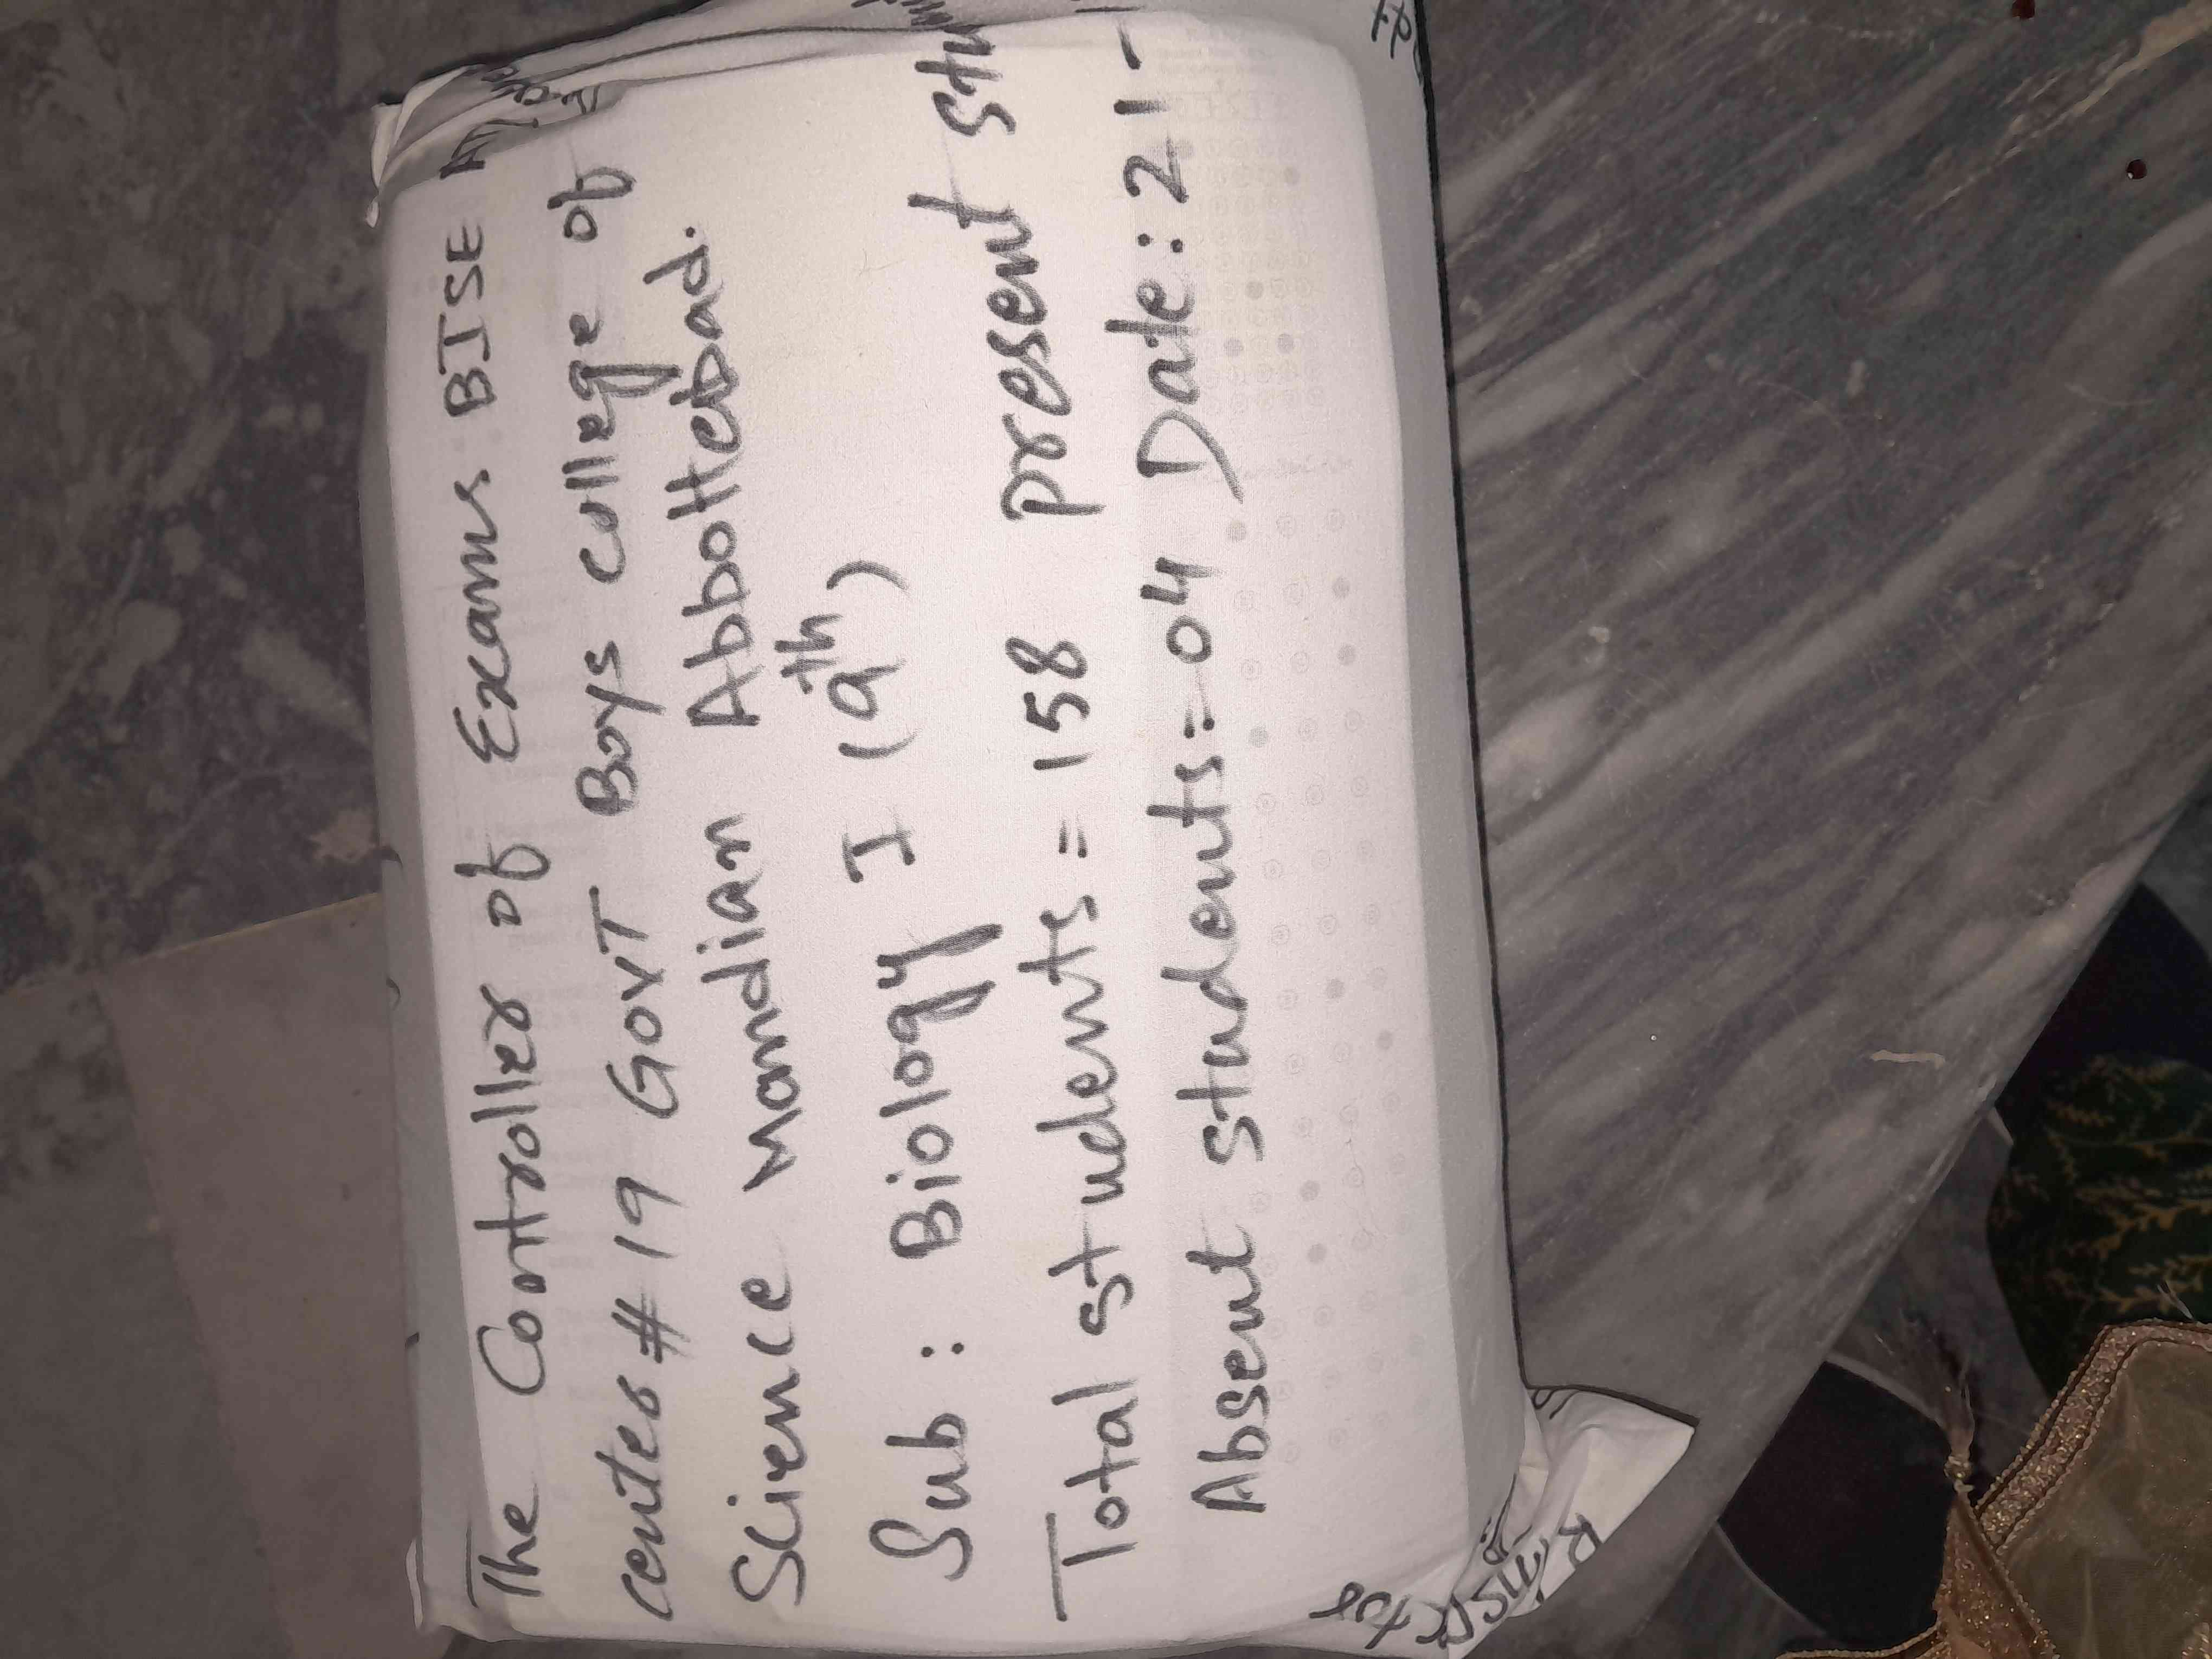 The Controller of Exams BISE
center # 19 GOVT Boys college of
Science Mandian Abbottabad.
Sub : Biology I (9th)
Total students = 158 present stu
Absent students = 04 Date : 21-